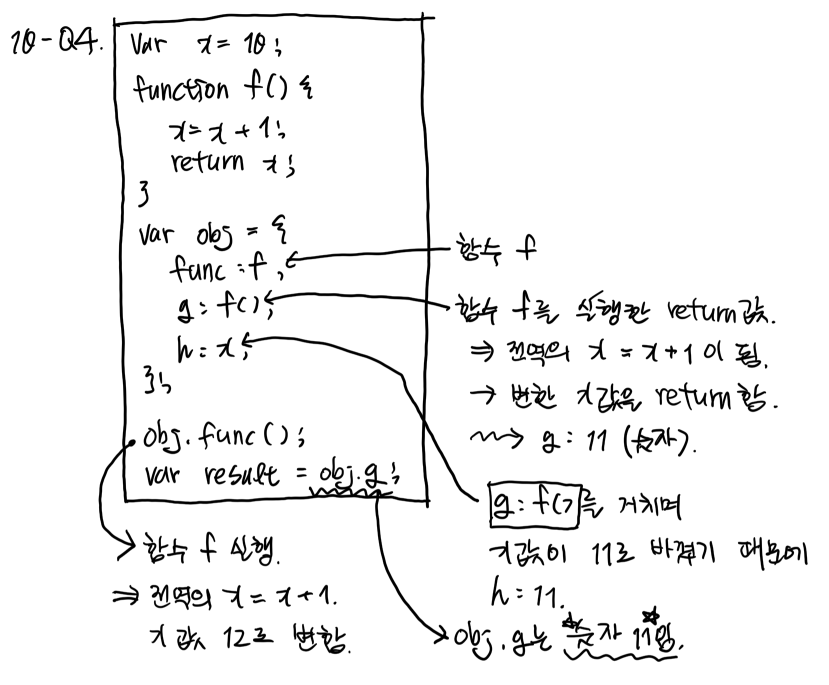 10-Q4.
var x = 10;
function f() {
x = x + 1;
return x;
}
var obj = {
func : f,
g : f(),
h : x,
};
obj.func();
var result = obj.g;
함수 f
함수 f를 실행한 return값.
⇒ 전역의 x = x+1 이 됨.
→ 변한 x값을 return 함.
~~> g : 11 (숫자).
g : f()를 거치며
x값이 11로 바뀌기 때문에
h = 11.
함수 f 실행.
⇒ 전역의 x = x+1.
x 값 12로 변함.
obj.g는 숫자 11임.